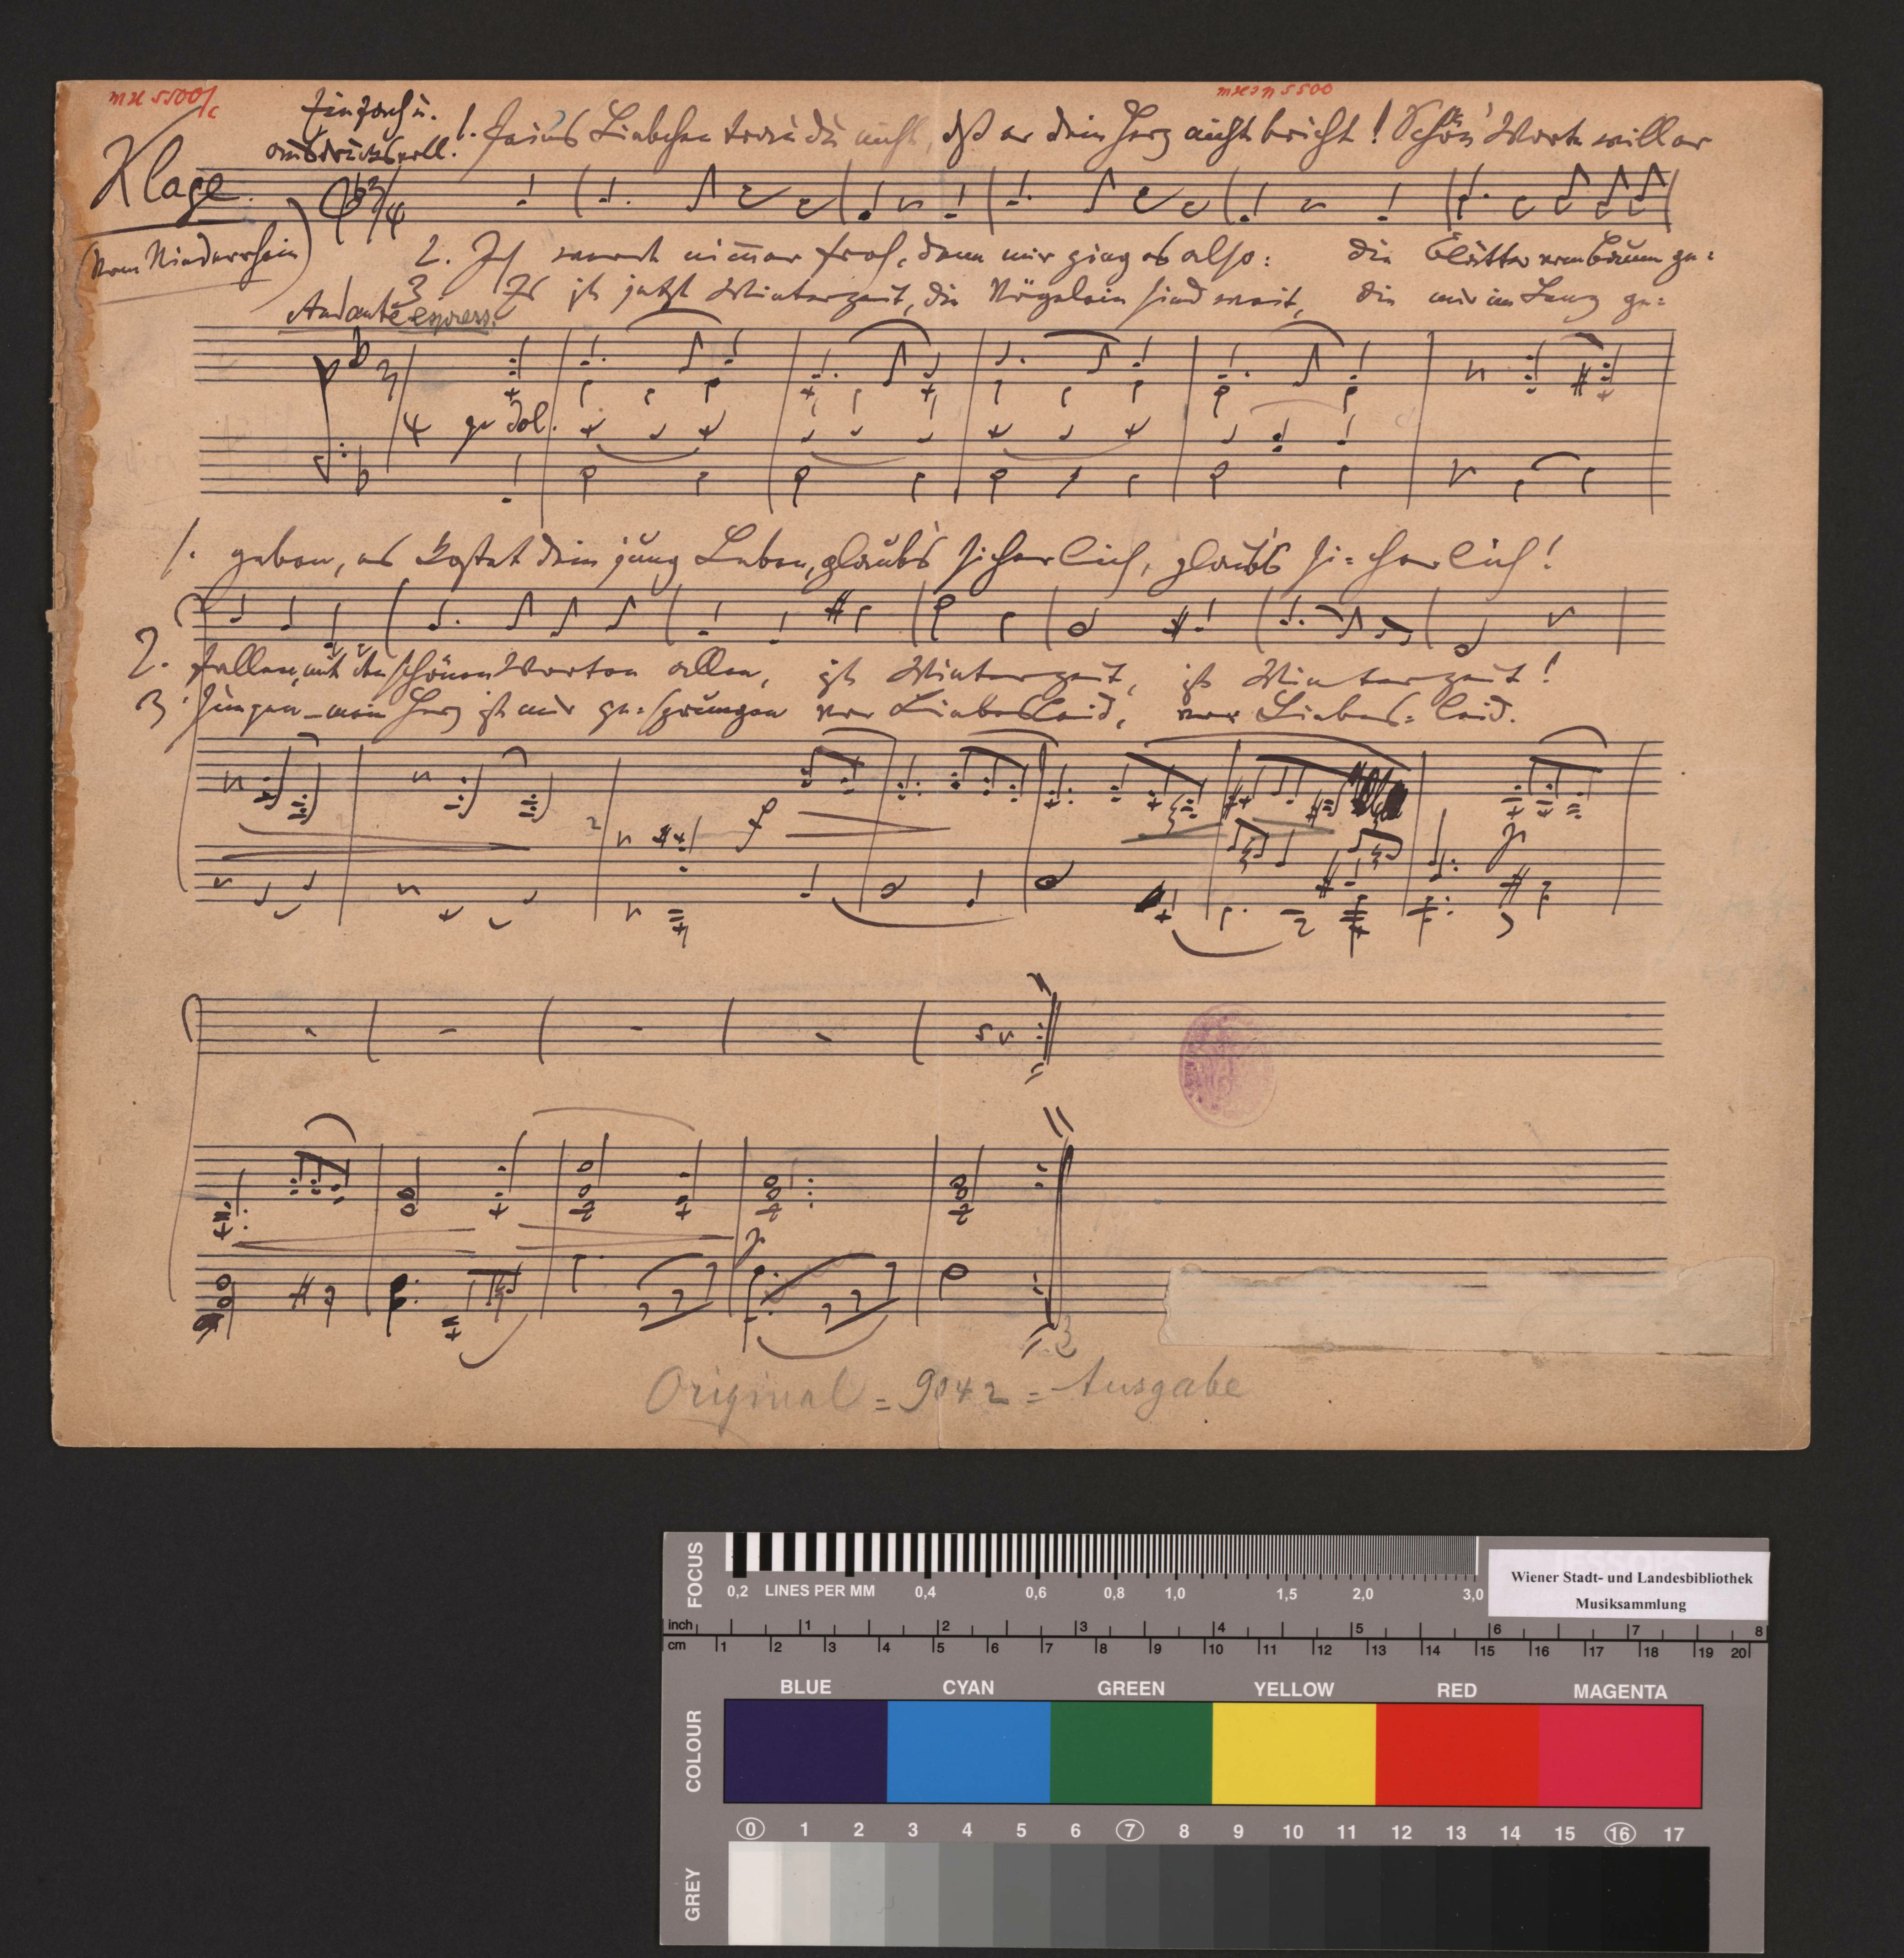 MH 5500/c
MHIN 5500
Einfach u.
ausdrucksvoll.
1. Feins Liebchen trau du nicht, dß er dein Herz nicht bricht! Schön' Worte will er
Klage.
(Vom Niederrhein)
2. Ich werde nimmer froh, denn mir ging es also: die Blätter vom Baum ge=
3 Es ist jetzt Winterzeit, die Vögelein sind weit, die mir im Lenz ge=
Andante express.
3/4
p dol.
1. geben, es kostet dein jung Leben, glaub's sicherlich, glaub's si=cherlich!
2. fallen, mit den schönen Worten allen, ist Winterzeit, ist Winterzeit!
3. sungen – mein Herz ist mir ge=sprungen vor Liebesleid, vor Liebes=leid.
f
p
p
Original = 9042 = Ausgabe
FOCUS
0,2 LINES PER MM 0,4 0,6 0,8 1,0 1,5 2,0 3,0
Wiener Stadt- und Landesbibliothek
Musiksammlung
inch 1 2 3 4 5 6 7 8
cm 1 2 3 4 5 6 7 8 9 10 11 12 13 14 15 16 17 18 19 20
COLOUR
BLUE CYAN GREEN YELLOW RED MAGENTA
GREY
0 1 2 3 4 5 6 7 8 9 10 11 12 13 14 15 16 17